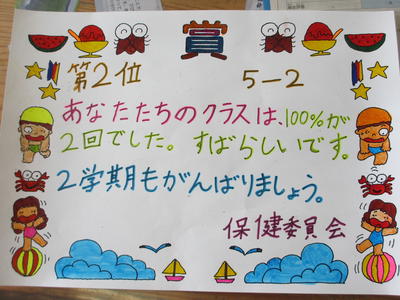 賞
第2位 5-2
あなたたちのクラスは、100%が
2回でした。すばらしいです。
2学期もがんばりましょう。
保健委員会